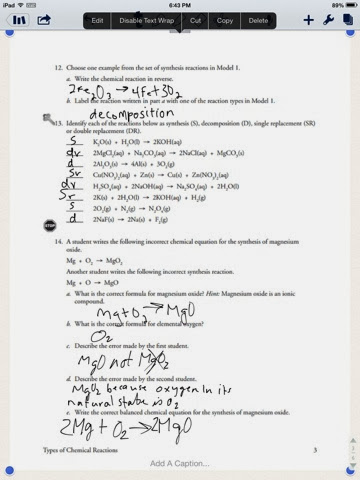 iPad
6:43 PM
89%
Edit
Disable Text Wrap
Cut
Copy
Delete
12. Choose one example from the set of synthesis reactions in Model 1.
a. Write the chemical reaction in reverse.
2Fe₂O₃ → 4Fe + 3O₂
b. Label the reaction written in part a with one of the reaction types in Model 1.
decomposition
13. Identify each of the reactions below as synthesis (S), decomposition (D), single replacement (SR)
or double replacement (DR).
S K₂O(s) + H₂O(l) → 2KOH(aq)
dr 2MgCl₂(aq) + Na₂CO₃(aq) → 2NaCl(aq) + MgCO₃(s)
d 2Al₂O₃(s) → 4Al(s) + 3O₂(g)
Sr Cu(NO₃)₂(aq) + Zn(s) → Cu(s) + Zn(NO₃)₂(aq)
dr H₂SO₄(aq) + 2NaOH(aq) → Na₂SO₄(aq) + 2H₂O(l)
Sr 2K(s) + 2H₂O(l) → 2KOH(aq) + H₂(g)
S 2O₂(g) + N₂(g) → N₂O₄(g)
d 2NaF(s) → 2Na(s) + F₂(g)
STOP
14. A student writes the following incorrect chemical equation for the synthesis of magnesium
oxide.
Mg + O₂ → MgO₂
Another student writes the following incorrect synthesis reaction.
Mg + O → MgO
a. What is the correct formula for magnesium oxide? Hint: Magnesium oxide is an ionic
compound.
Mg + O₂ → MgO
b. What is the correct formula for elemental oxygen?
O₂
c. Describe the error made by the first student.
MgO not MgO₂
d. Describe the error made by the second student.
MgO₂ because oxygen in its
natural state is O₂
e. Write the correct balanced chemical equation for the synthesis of magnesium oxide.
2Mg + O₂ → 2MgO
Types of Chemical Reactions
3
Add A Caption...